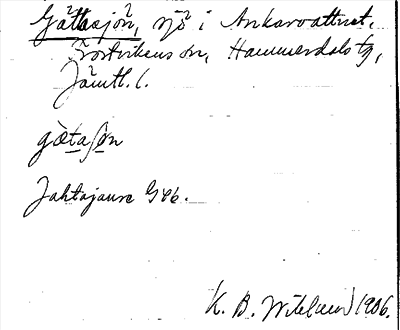 Gåttasjön, sjö i Ankarvattnet,
Frostvikens sn, Hammerdals tg,
Jämtl. l.
gȯ̀taʃon
Jahtajaure Geb.
K. B. Wiklund 1906.